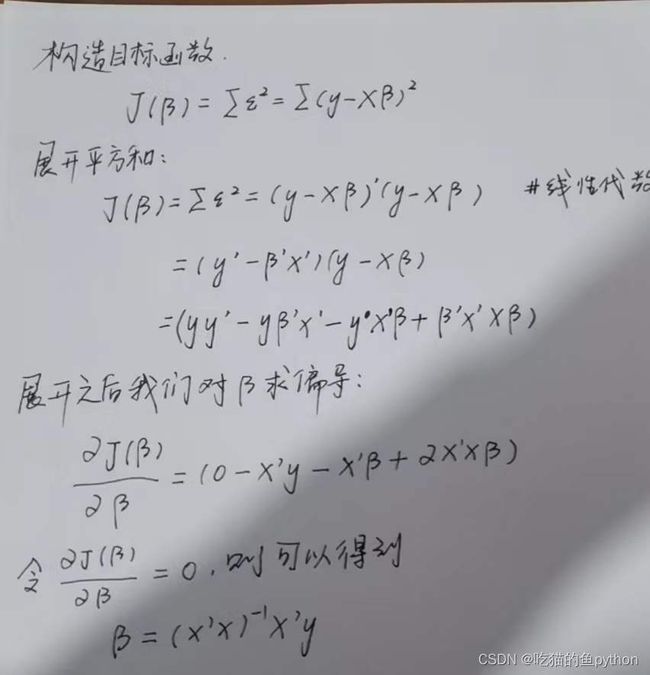 构造目标函数.
J(β) = Σε² = Σ(y-Xβ)²
展开平方和:
J(β) = Σε² = (y-Xβ)'(y-Xβ) #线性代数
= (y'-β'x')(y-Xβ)
= (yy'-yβ'x'-y'x'β+β'x'xβ)
展开之后我们对β求偏导:
∂J(β)/∂β = (0-x'y-x'β+2x'xβ)
令 ∂J(β)/∂β = 0, 则可以得到
β = (x'x)⁻¹x'y
CSDN @吃猫的鱼python